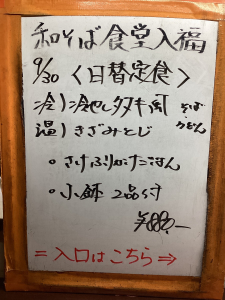 和そば食堂入福
9/30 〈日替定食〉
冷)冷やしタヌキ(冊) そば・うどん
温)きざみとじ
・さけふりかけごはん
・小鉢 2品付
=入口はこちら⇒